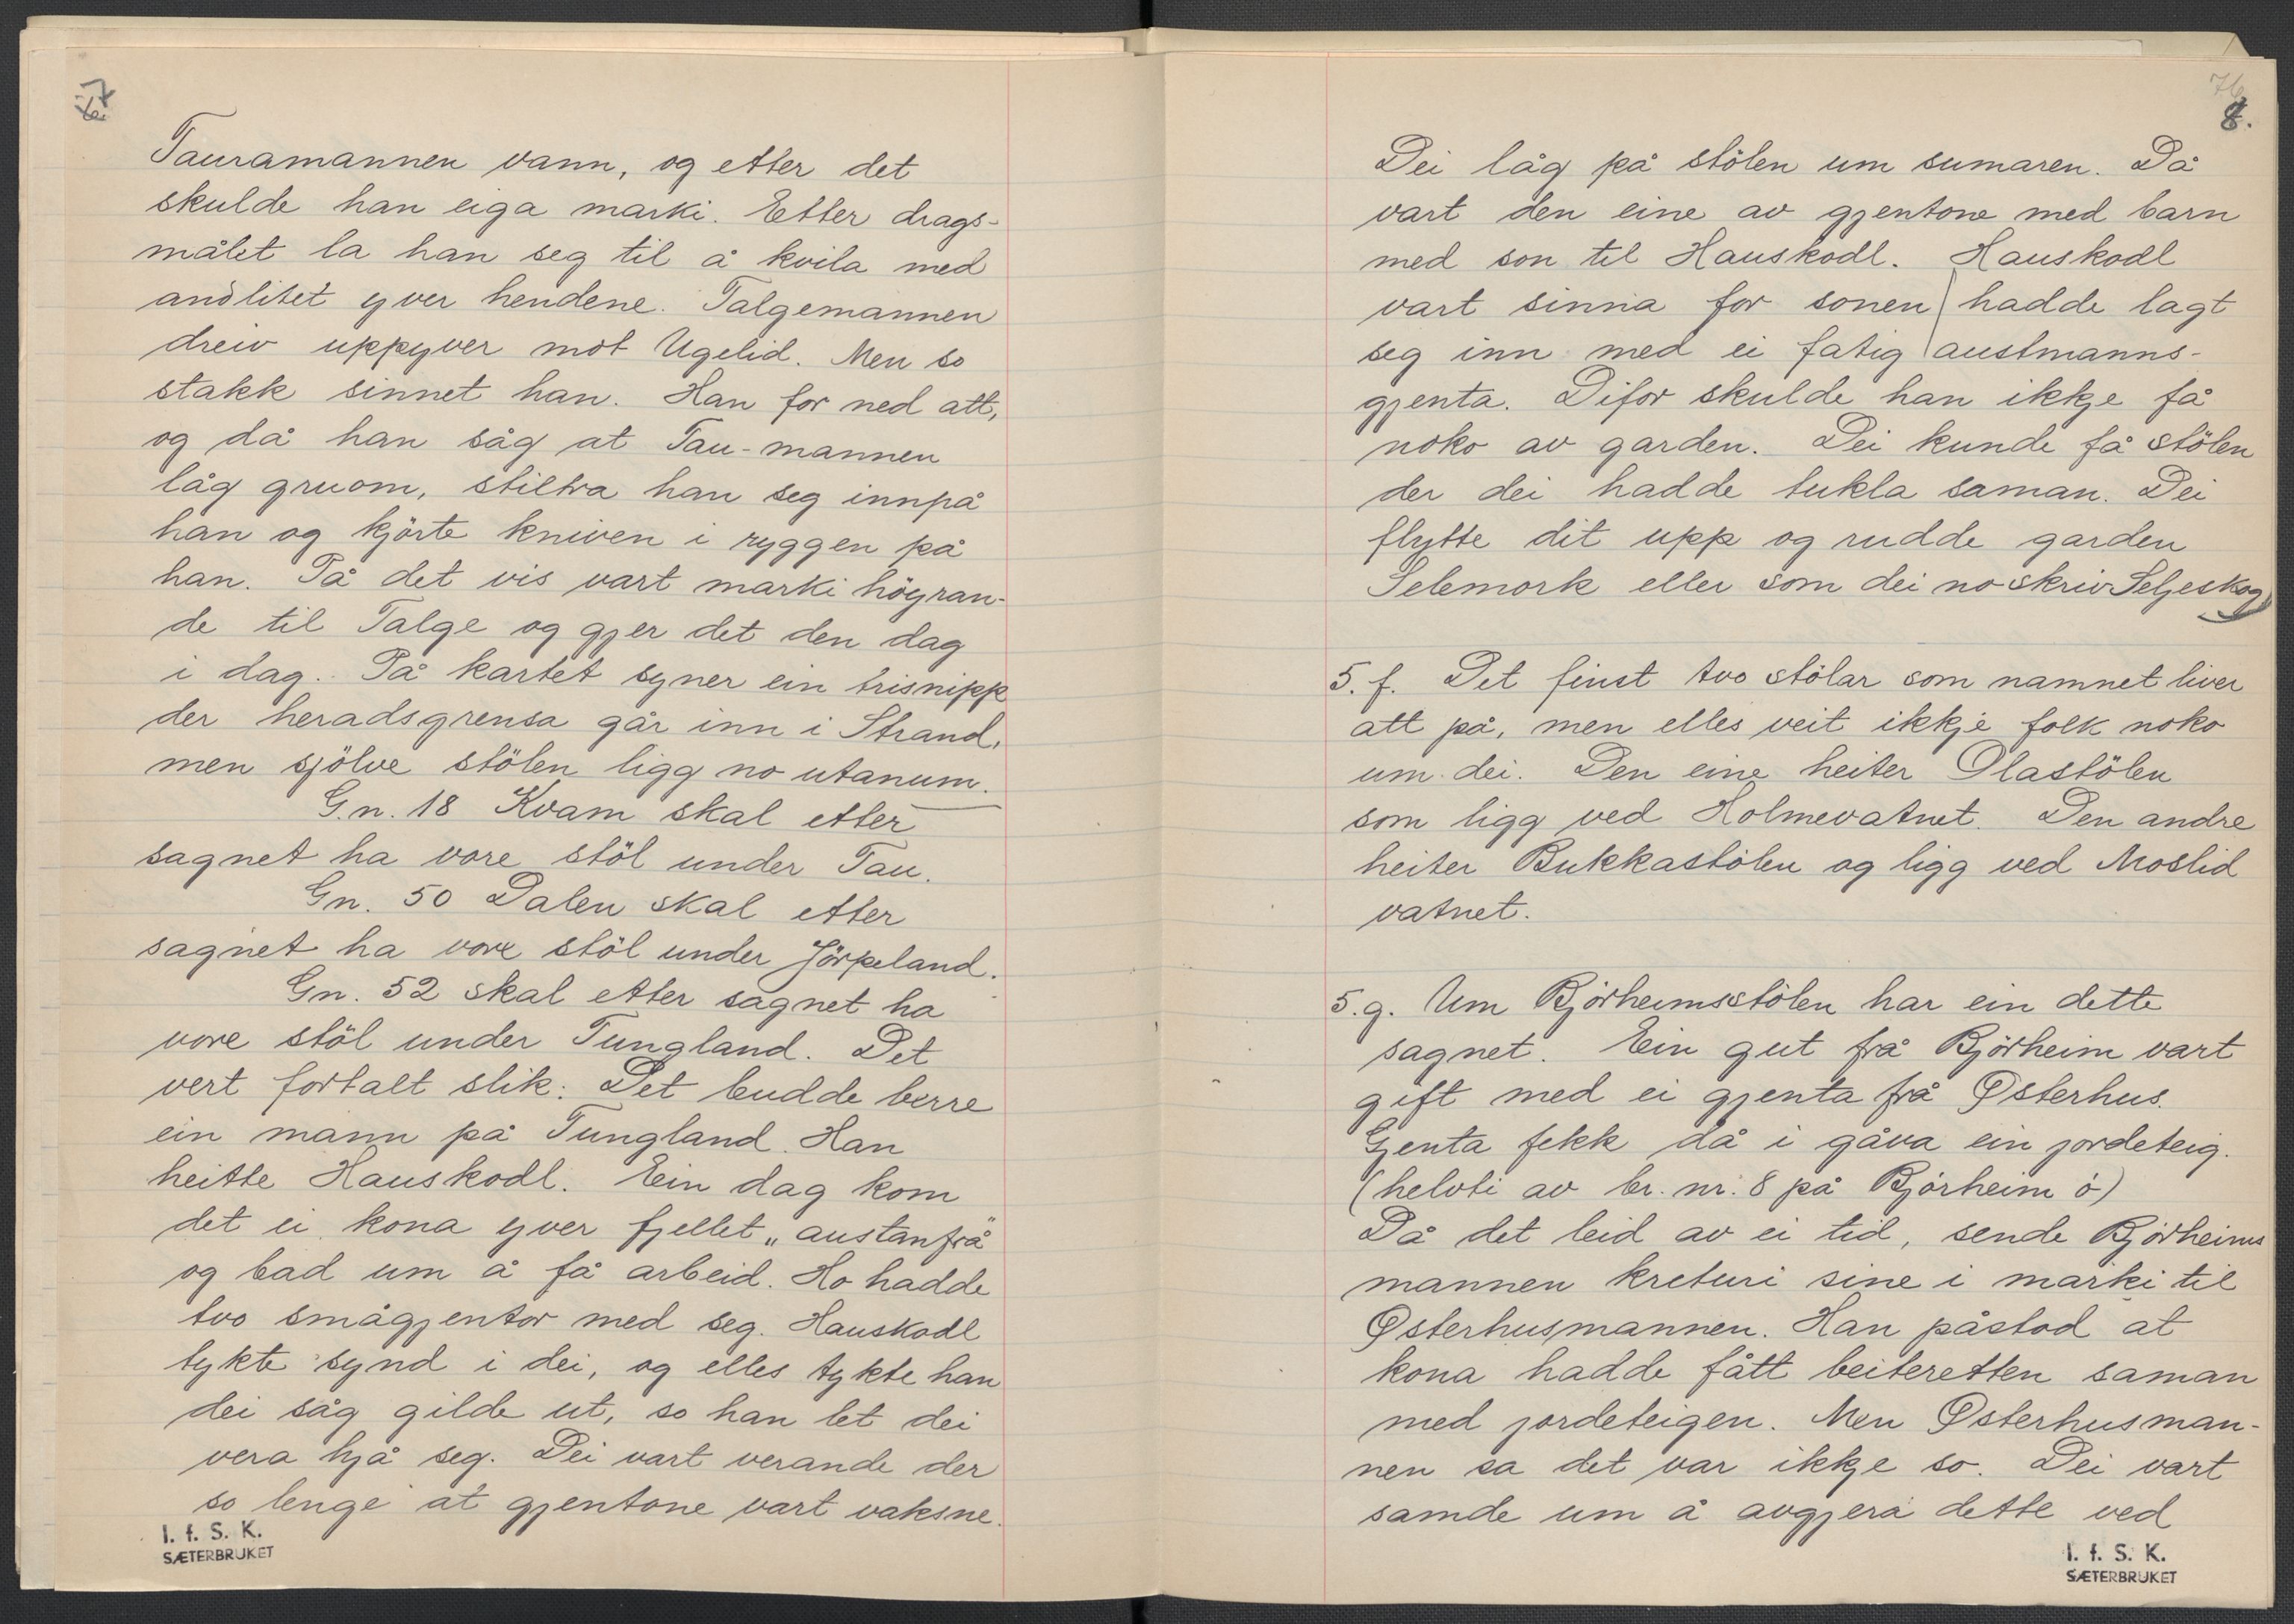 7
Tauramannen vann, og etter det
skulde han eiga marki. Etter drags-
målet la han seg til å kvila med
andlitet yver hendene. Talgemannen
dreiv uppyver mot Ugelid. Men so
stakk sinnet han. Han for ned att,
og då han såg at Tau-mannen
låg gruom, stiltra han seg innpå
han og kjörte kniven i ryggen på
han. På det vis vart marki höyran-
de til Talge og gjer det den dag
i dag. På kartet syner ein trisnipp
der heradsgrensa går inn i Strand,
men sjölve stölen ligg no utanum.
G.n. 18 Kvam skal etter
sagnet ha vore stöl under Tau.
Gn. 50 Dalen skal etter
sagnet ha vore stöl under Jörpeland.
Gn. 52 skal etter sagnet ha
vore stöl under Tungland. Det
vert fortalt slik: Det budde berre
ein mann på Tungland. Han
heitte Hauskodl. Ein dag kom
det ei kona yver fjellet „austanfrå"
og bad um å få arbeid. Ho hadde
tvo smågjentor med seg. Hauskodl
tykte synd i dei, og elles tykte han
dei såg gilde ut, so han let dei
vera hjå seg. Dei vart verande der
so lenge at gjentone vart vaksne.
I. f. S. K.
SÆTERBRUKET
76
8.
Dei låg på stölen um sumaren. Då
vart den eine av gjentone med barn
med son til Hauskodl. Hauskodl
vart sinna for sonen hadde lagt
seg inn med ei fatig austmanns-
gjenta. Difor skulde han ikkje få
noko av garden. Dei kunde få stölen
der dei hadde tukla saman. Dei
flytte dit upp og rudde garden
Selemork eller som dei no skriv Seljeskog
5. f. Det finst tvo stölar som namnet liver
att på, men elles veit ikkje folk noko
um dei. Den eine heiter Olastölen
som ligg ved Holmevatnet. Den andre
heiter Bukkastölen og ligg ved Moslid
vatnet.
5. g. Um Bjørheimsstölen har ein dette
sagnet. Ein gut frå Bjørheim vart
gift med ei gjenta frå Østerhus.
Gjenta fekk då i gåva ein jordeteig.
(helvti av br. nr. 8 på Bjørheim ö)
Då det leid av ei tid, sende Bjørheims
mannen kreturi sine i marki til
Østerhusmannen. Han påstod at
kona hadde fått beiteretten saman
med jordeteigen. Men Østerhusman-
nen sa det var ikkje so. Dei vart
samde um å avgjera dette ved
I. f. S. K.
SÆTERBRUKET